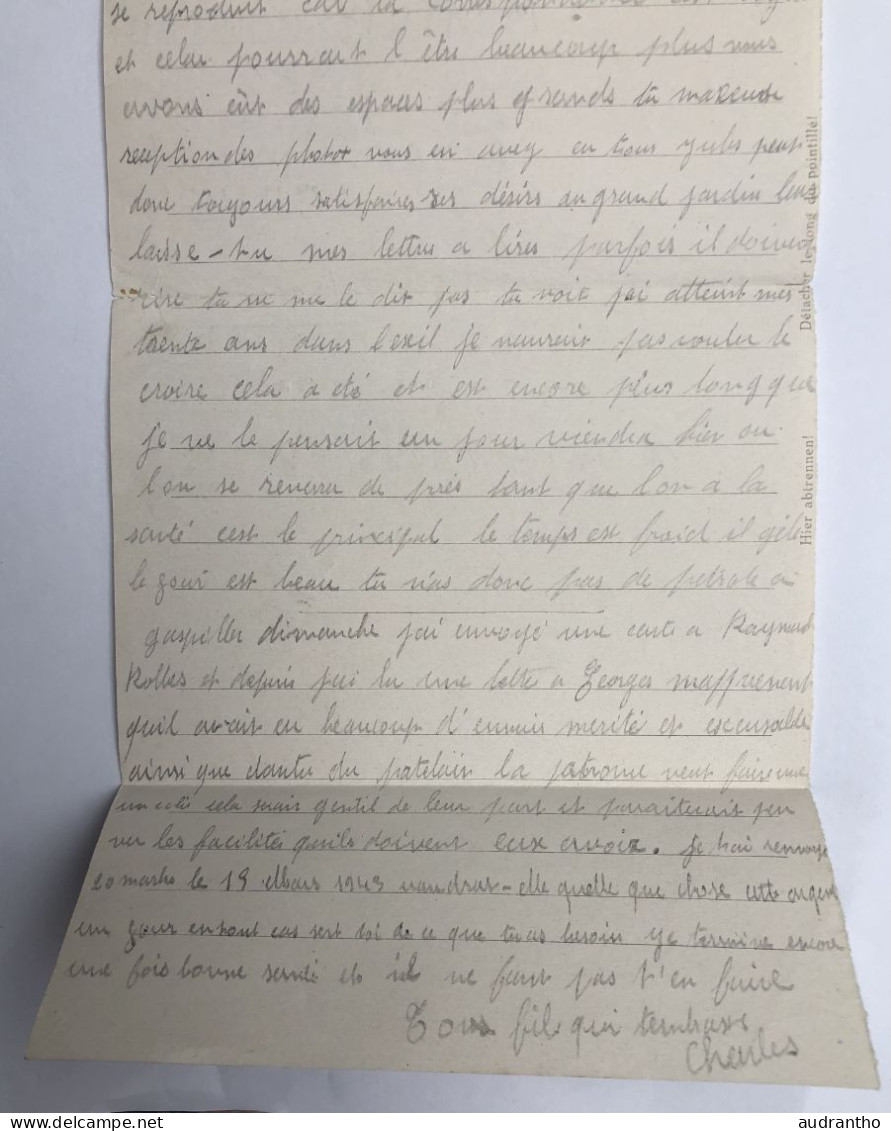 se reproduit car la correspondance est
et celui pourrait l'être beaucoup plus nous
avons eût des espaces plus grands tu
reception des photos vous en avez en tous peut
donc toujours satisfaires ses désirs au grand jardin leur
laisse-tu mes lettre a lires parfois il doivent
rire tu ne me le dit pas tu voit j'ai atteint mes
trente ans dans l'exil je naurais pas voulu le
croire cela a été et est encore plus long que
je ne le pensait un jour viendra bien ou
l'on se reverra de près tant que l'on a la
santé cest le principal le temps est froid il gèle
le jour est beau tu n'as donc pas de petrole a
gaspiller dimanche j'ai envoyé une carte a Raymond
Rolles et depuis j'ai lu une lettre a Georges
quil avait eu beaucoup d'ennuis merité et excusable
ainsi que du patelain la patronne veut faire un
un colis cela serait gentil de leur part et
les facilités quils doivent eux avoir. je t'ai renvoyé
20 marks le 18 Mars 1943 vaudras-elle quelle que chose cette argent
un jour entout cas sert toi de ce que tu as besoin je termine encore
une fois bonne santé et il ne faut pas t'en faire
Ton fils qui tembrasse
Charles
Détacher le long du pointillé!
Hier abtrennen!
delcampe.net
audrantho